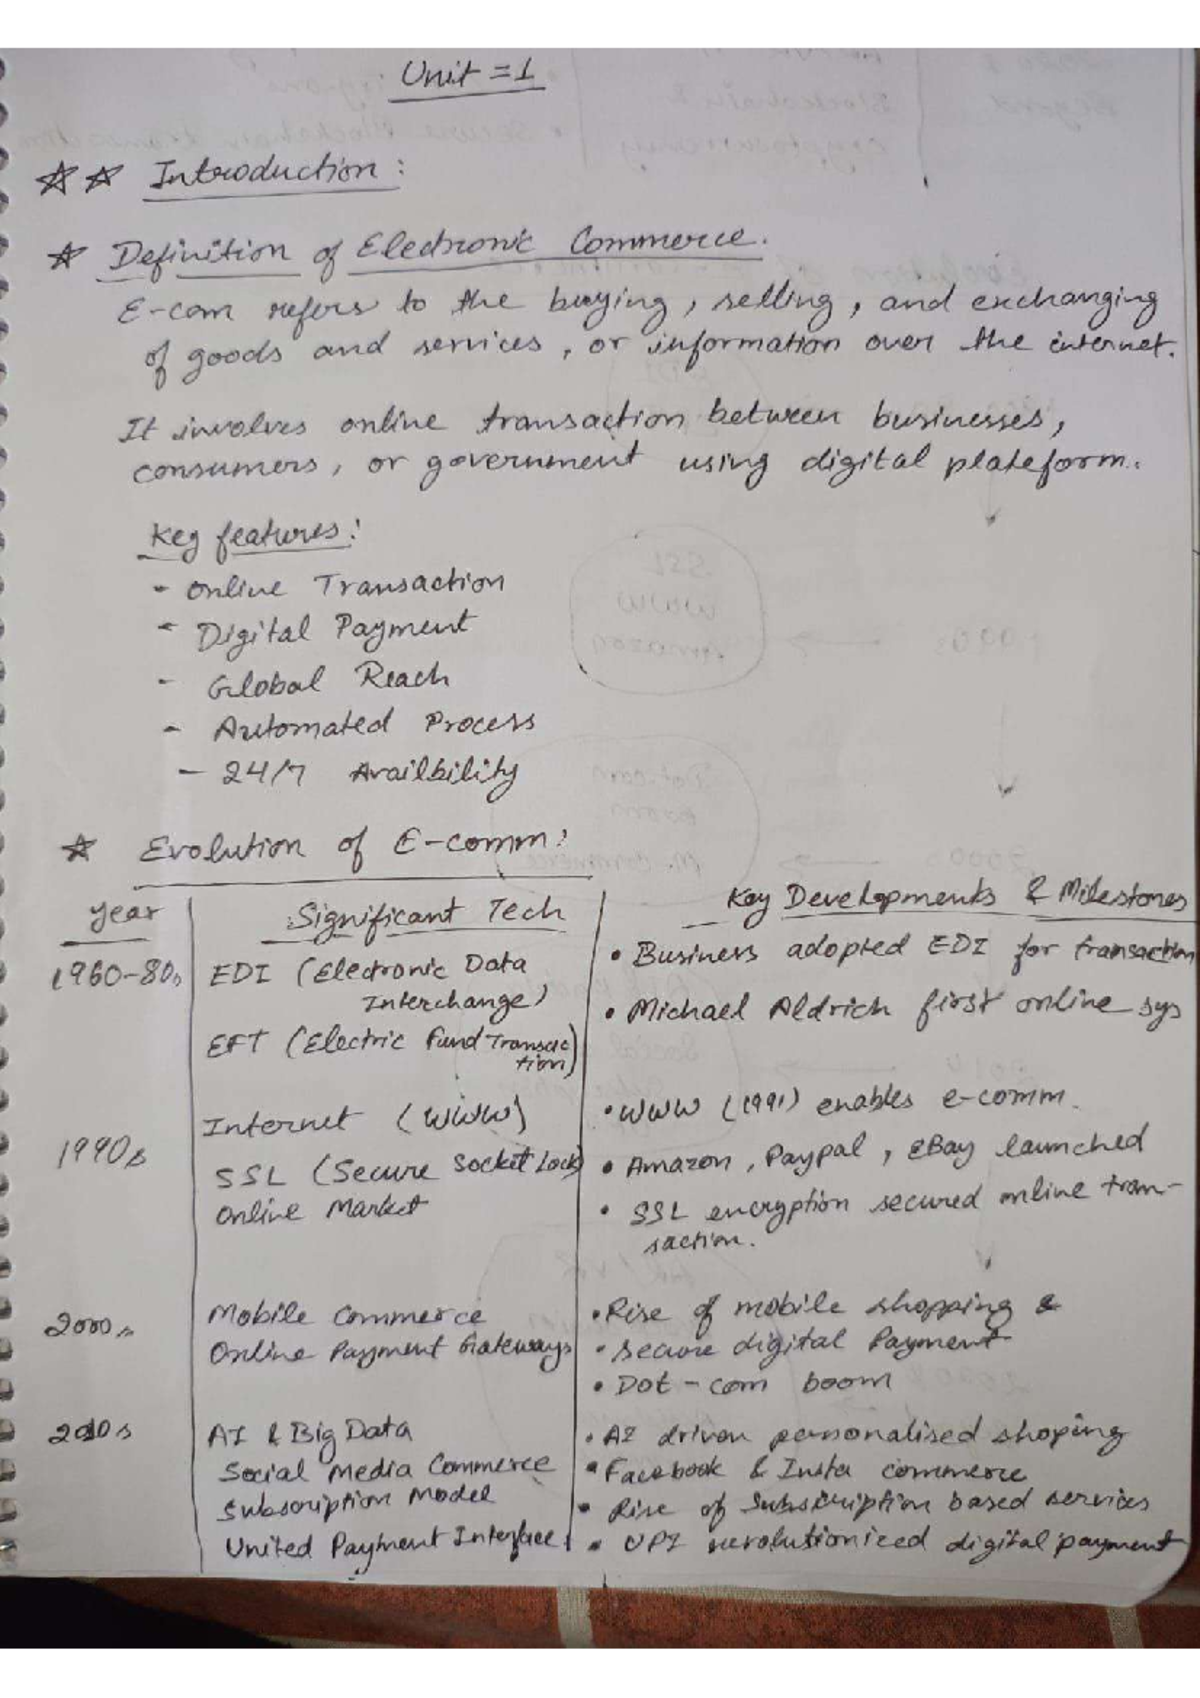 Unit = 1
Introduction :
Definition of Electronic Commerce.
E-com refers to the buying, selling, and exchanging
of goods and services, or information over the internet.
It involves online transaction between businesses,
consumers, or government using digital plateform.
Key features:
- Online Transaction
- Digital Payment
- Global Reach
- Automated Process
- 24/7 Availbility
Evolution of E-comm:
Year
Significant Tech
Key Developments & Milestones
1960-80s
EDI (Electronic Data
Interchange)
EFT (Electric Fund Transac
tion)
• Business adopted EDI for transaction
• Michael Aldrich first online sys
1990s
Internet (WWW)
SSL (Secure Socket Lock)
Online Market
• WWW (1991) enables e-comm.
• Amazon, Paypal, eBay launched
• SSL encryption secured online tran-
saction.
2000s
Mobile Commerce
Online Payment Gateways
• Rise of mobile shopping &
• secure digital Payment
• Dot-com boom
2010s
AI & Big Data
Social Media Commerce
Subscription Model
United Payment Interface
• AI driven personalised shoping
• Facebook & Insta commerce
• Rise of Subscription based services
• UPI revolutionized digital payment